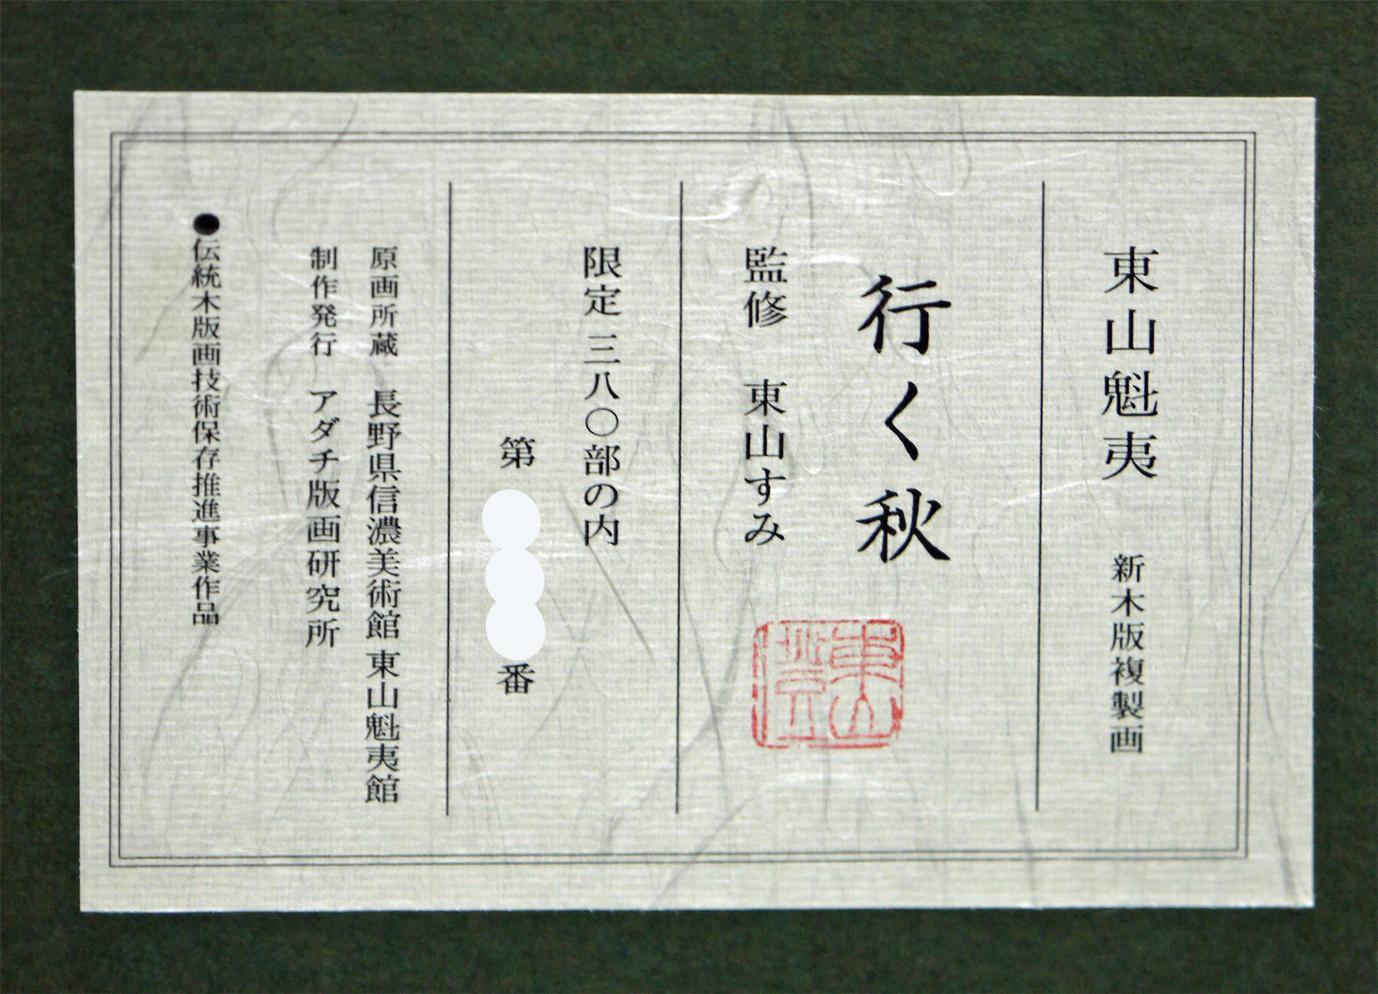 東山魁夷 新木版複製画
行く秋
監修 東山すみ
限定 三八〇部の内
第
番
原画所蔵 長野県信濃美術館 東山魁夷館
制作発行 アダチ版画研究所
●伝統木版画技術保存推進事業作品